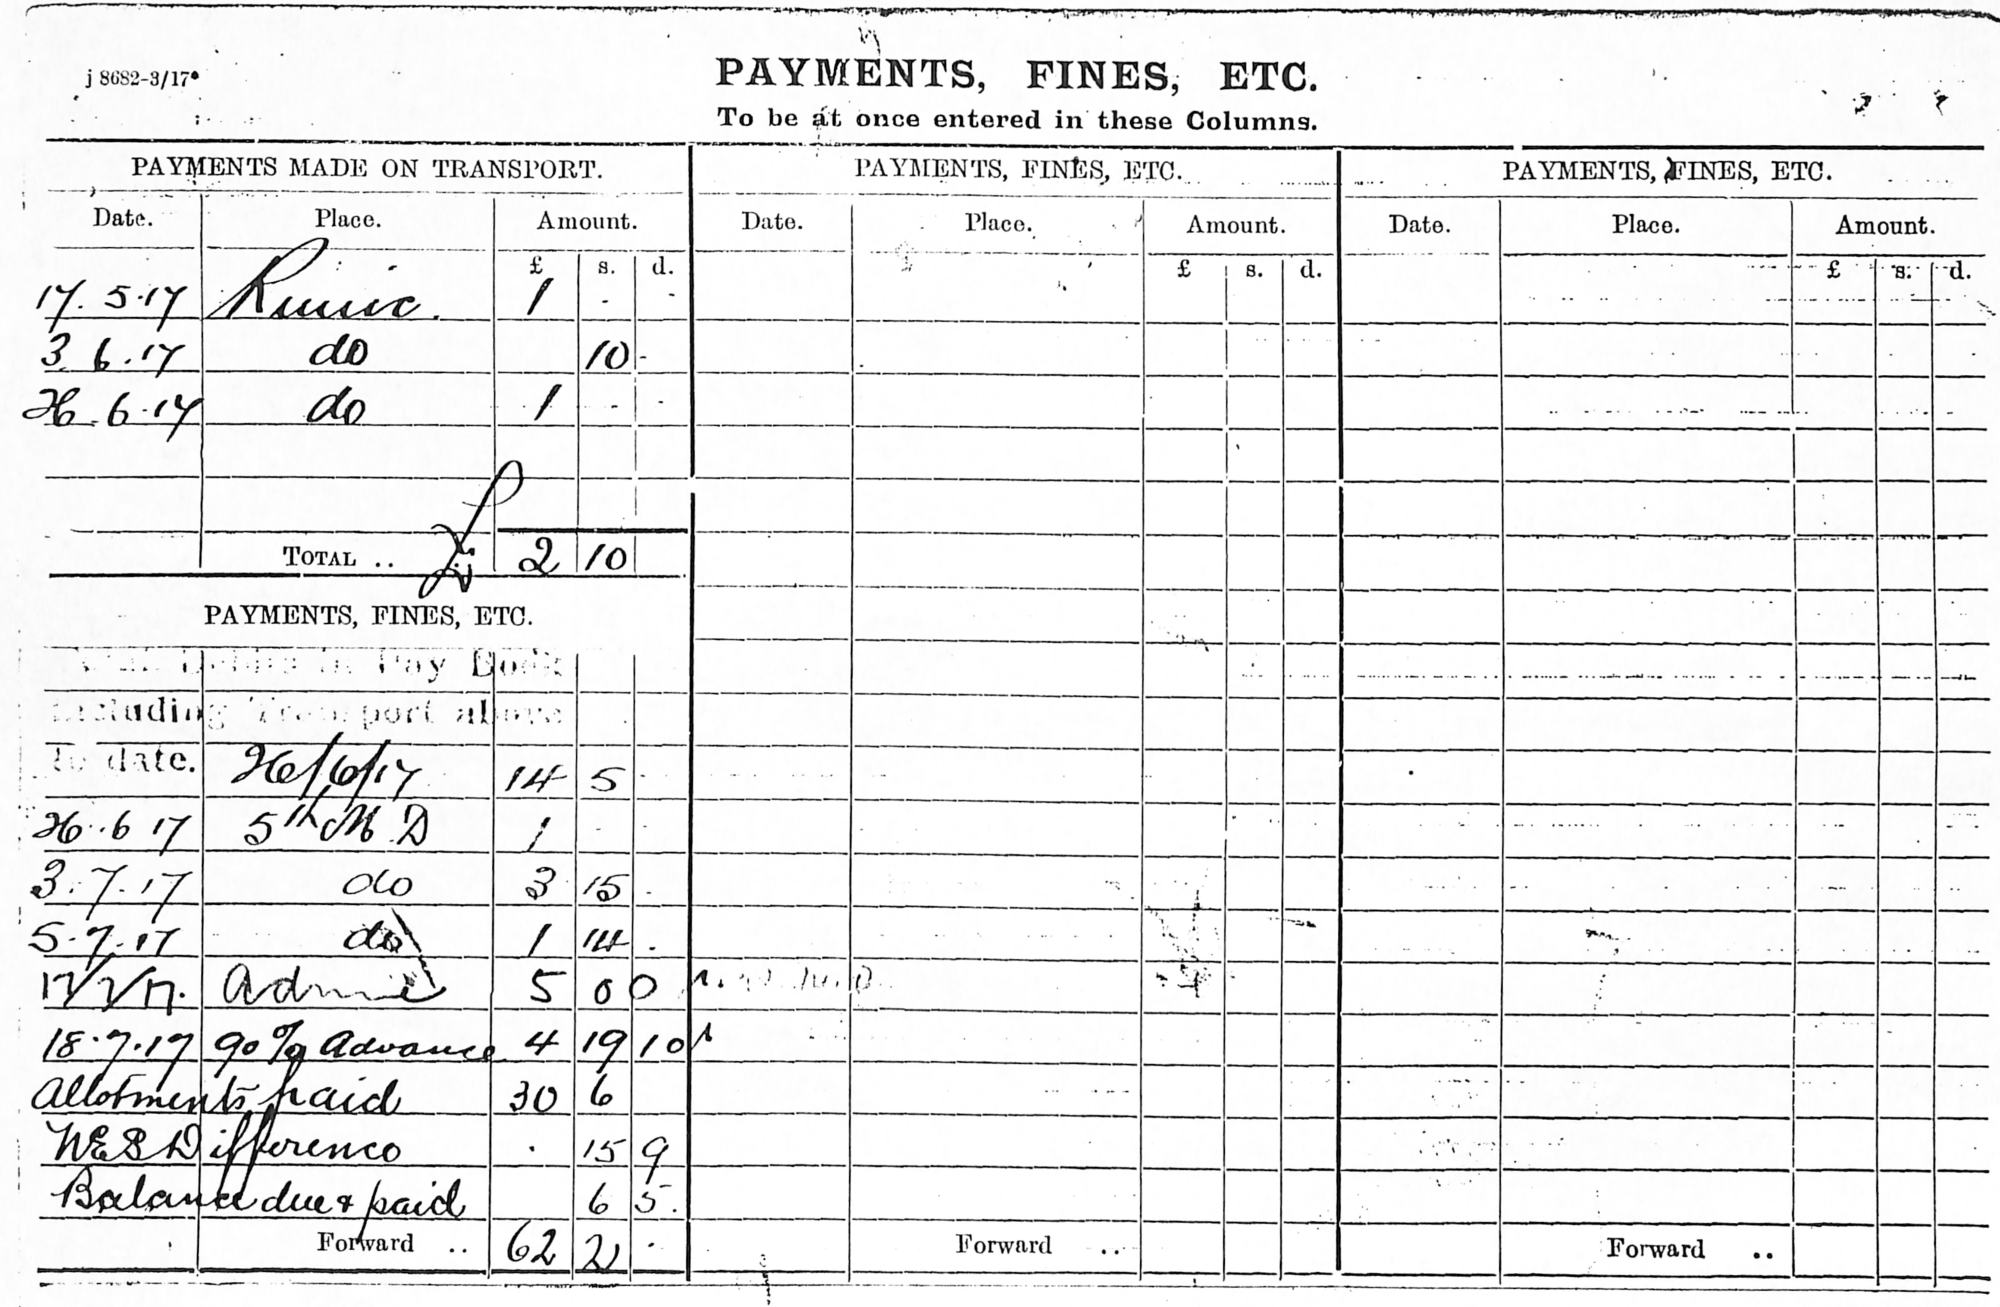 j 8682-3/17
PAYMENTS, FINES, ETC.
To be at once entered in these Columns.
PAYMENTS MADE ON TRANSPORT.
Date. Place. Amount.
£ s. d.
17.5.17 Runic. 1 - -
3.6.17 do 10 -
26.6.17 do 1 - -
TOTAL .. 2 10
PAYMENTS, FINES, ETC.
Pay Book
including Transport above
to date. 26/6/17 14 5
26.6 17 5th M D 1
3.7.17 do 3 15
5.7.17 do 1 14
17/7/17. 5 0 0
18.7.17 90% Advance 4 19 10
Allotments paid 30 6
Difference 15 9
Balance due & paid 6 5
Forward .. 62 2
PAYMENTS, FINES, ETC.
Date. Place. Amount.
£ s. d.
Forward ..
PAYMENTS, FINES, ETC.
Date. Place. Amount.
£ s. d.
Forward ..